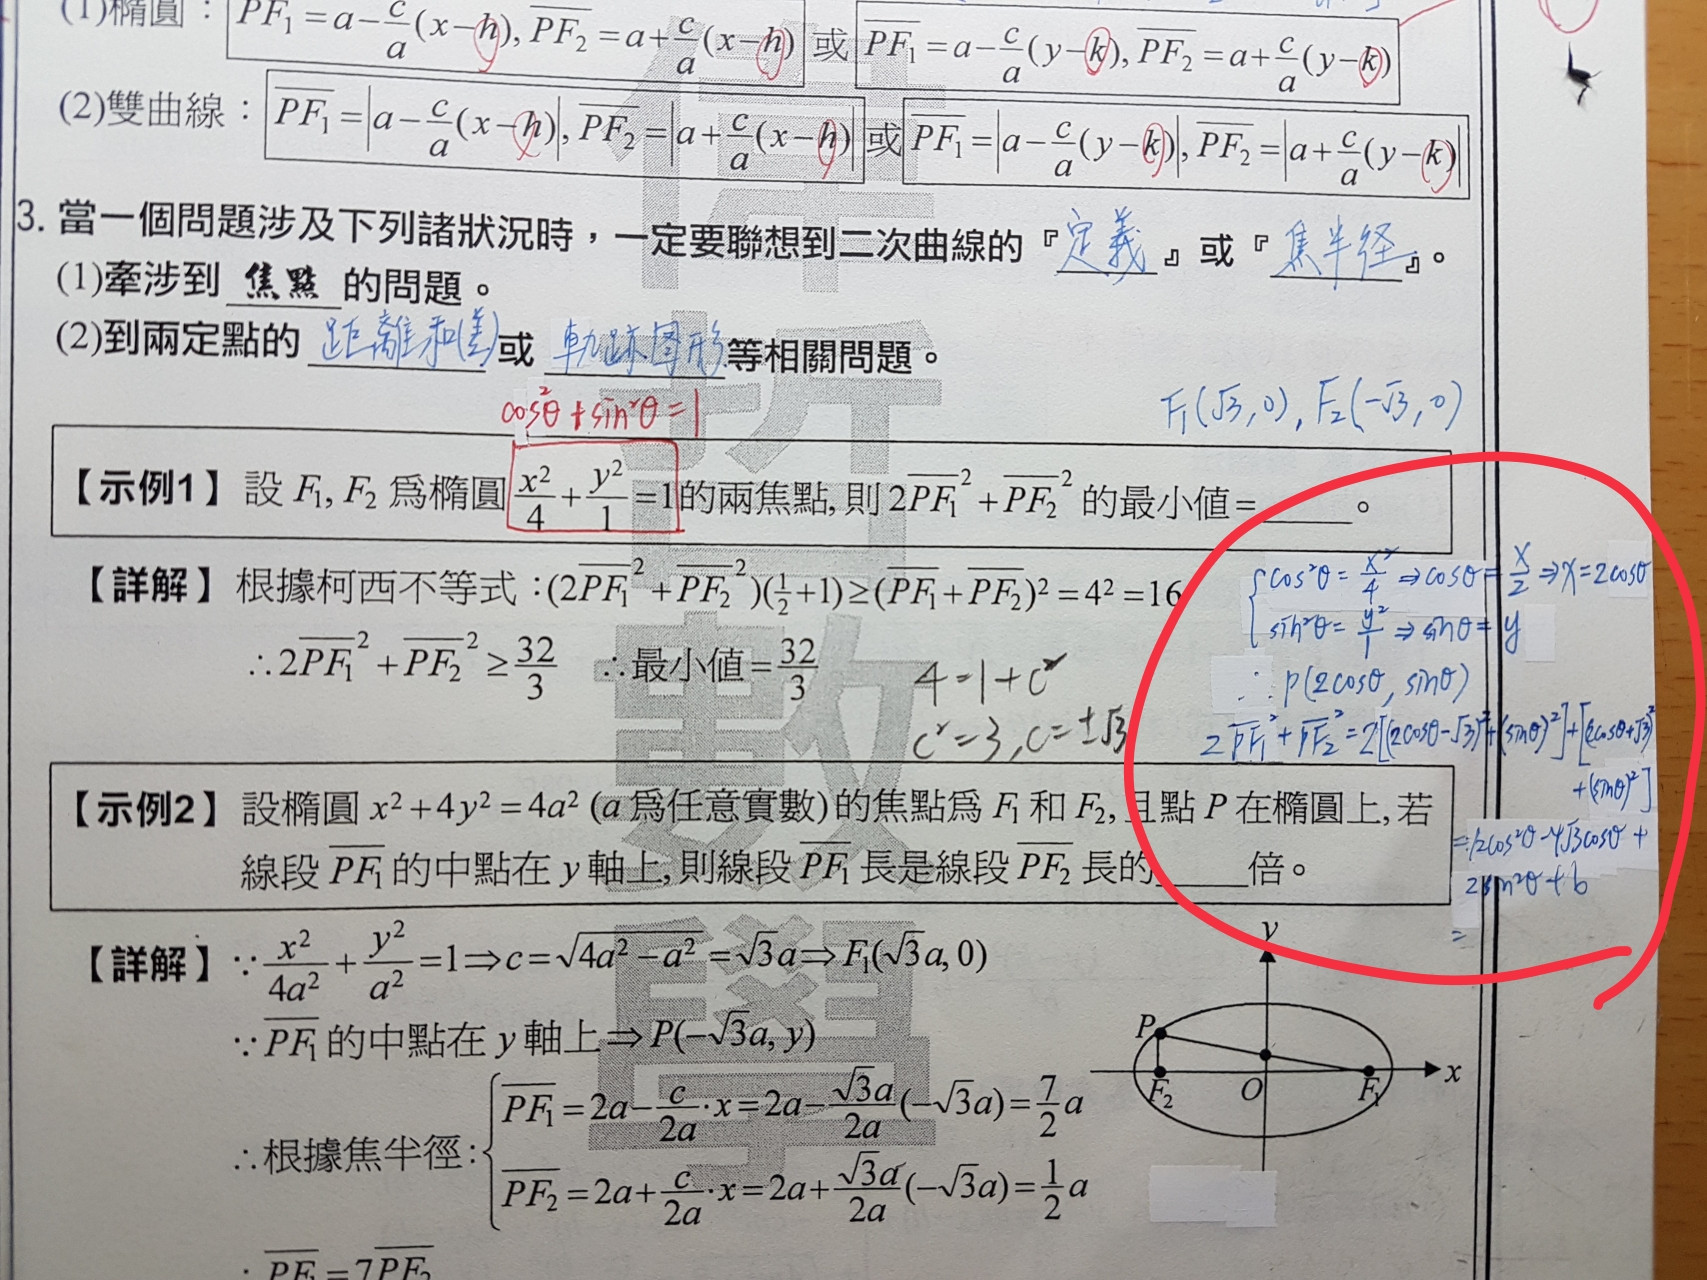 (1)橢圓：PF₁=a−c/a(x−h), PF₂=a+c/a(x−h) 或 PF₁=a−c/a(y−k), PF₂=a+c/a(y−k)
(2)雙曲線：PF₁=|a−c/a(x−h)|, PF₂=|a+c/a(x−h)| 或 PF₁=|a−c/a(y−k)|, PF₂=|a+c/a(y−k)|
3. 當一個問題涉及下列諸狀況時，一定要聯想到二次曲線的『定義』或『焦半径』。
(1)牽涉到 焦點 的問題。
(2)到兩定點的 距離和(差) 或 軌跡圖形 等相關問題。
cos²θ+sin²θ=1
F₁(√3,0), F₂(−√3,0)
【示例1】設 F₁, F₂ 爲橢圓 x²/4+y²/1=1的兩焦點, 則 2PF₁²+PF₂² 的最小値=_____。
【詳解】根據柯西不等式：(2PF₁²+PF₂²)(1/2+1)≥(PF₁+PF₂)²=4²=16
∴2PF₁²+PF₂²≥32/3 ∴最小値=32/3
4=1+c²
c²=3, c=±√3
{cos²θ=x²/4⇒cosθ=x/2⇒x=2cosθ
sin²θ=y²/1⇒sinθ=y
∴P(2cosθ, sinθ)
2PF₁²+PF₂²=2[(2cosθ−√3)²+(sinθ)²]+[(2cosθ+√3)²
+(sinθ)²]
=12cos²θ−4√3cosθ+
2sin²θ+6
=
【示例2】設橢圓 x²+4y²=4a² (a 爲任意實數) 的焦點爲 F₁ 和 F₂, 且點 P 在橢圓上, 若
線段 PF₁ 的中點在 y 軸上, 則線段 PF₁ 長是線段 PF₂ 長的_____倍。
【詳解】∵x²/4a²+y²/a²=1⇒c=√4a²−a²=√3a⇒F₁(√3a, 0)
∵PF₁ 的中點在 y 軸上⇒P(−√3a, y)
∴根據焦半徑：{PF₁=2a−c/2a·x=2a−√3a/2a(−√3a)=7/2a
PF₂=2a+c/2a·x=2a+√3a/2a(−√3a)=1/2a
∴PF₁=7PF₂
y
P
F₂ O F₁ x
倍折數學